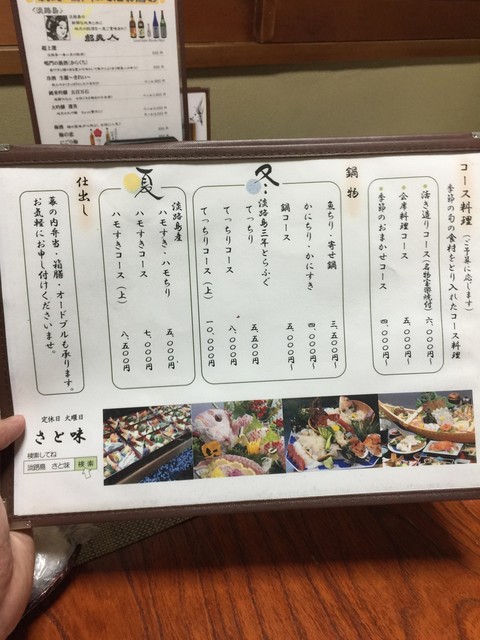 コース料理（ご予算に応じます）
季節の旬の食材をとり入れたコース料理
活き造りコース（名物宝楽焼付） 六、〇〇〇円〜
会席料理コース 五、〇〇〇円〜
季節のおまかせコース 四、〇〇〇円〜
鍋物
冬
魚ちり・寄せ鍋 三、五〇〇円〜
かにちり・かにすき 四、〇〇〇円〜
鍋コース 五、〇〇〇円〜
淡路島三年とらふぐ
てっちり 五、五〇〇円
てっちりコース 八、〇〇〇円
てっちりコース（上） 一〇、〇〇〇円
夏
淡路島産
ハモすき・ハモちり 五、〇〇〇円
ハモすきコース 七、〇〇〇円
ハモすきコース（上） 八、五〇〇円
仕出し
幕の内弁当・箱膳・オードブルも承ります。
お気軽にお申し付けくださいませ。
定休日 火曜日
さと味
検索してね
淡路島 さと味 検索
＜淡路島＞
都美人